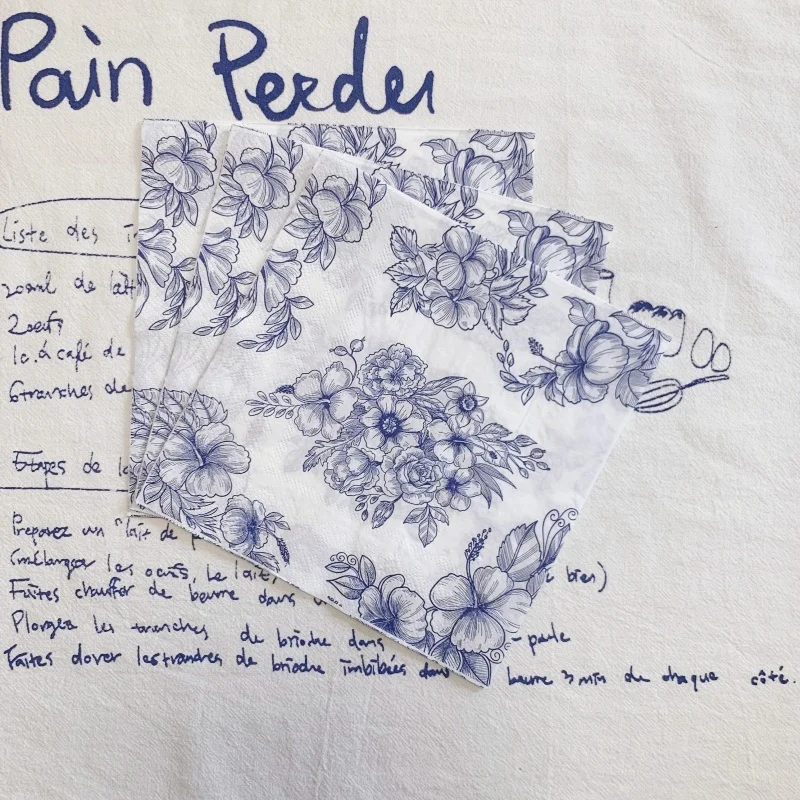 Pain Perdu
Liste des
200ml de lait
2 oeufs
1c. à café de
6 tranches de
Etapes de
Preparez un "lait de
(mélanger les oeufs, le lait, bien)
Faites chauffer de beurre dans
Plongez les tranches de brioche dans
Faites dorer les tranches de brioche imbibées dans beurre 3 min de chaque côté.